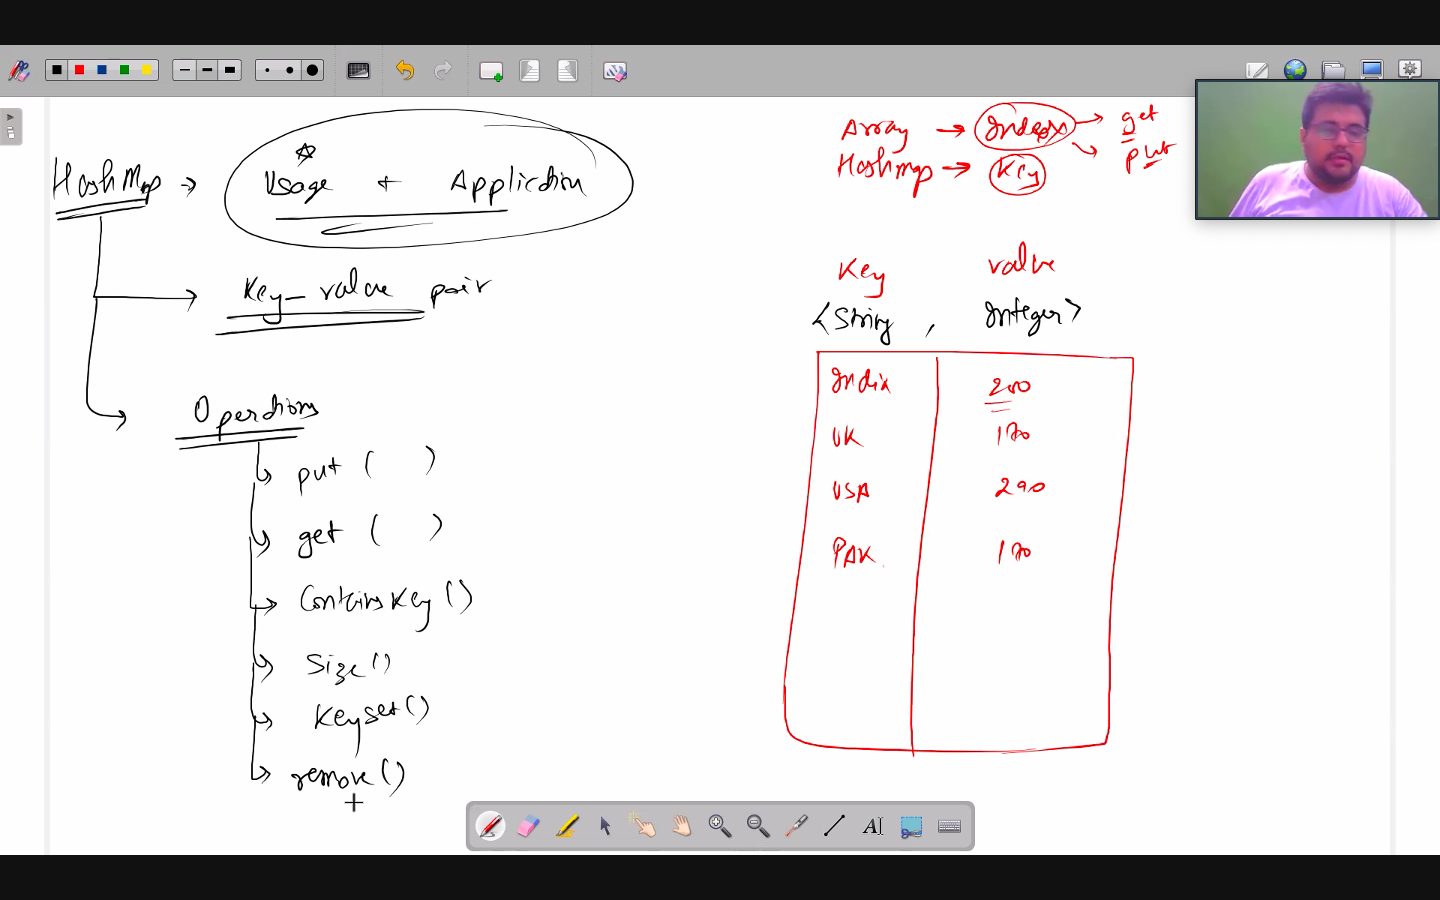 HashMap → Usage + Application
Key-value pair
Operations
put ( )
get ( )
ContainsKey ()
Size ()
Keyset ()
remove ()
Array → Index → get
put
Hashmap → Key
Key value
<String , Integer>
India 200
UK 170
USA 290
PAK 170
AI